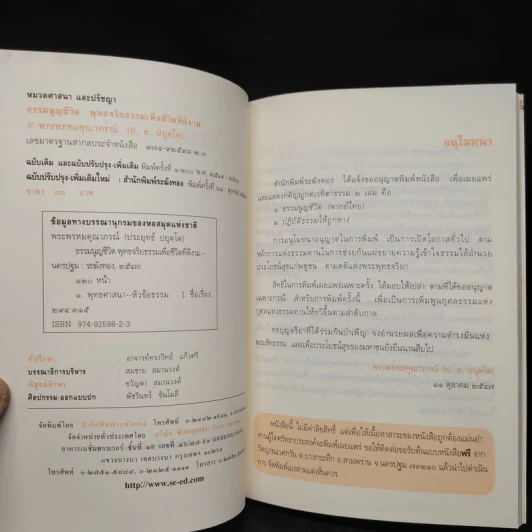 หมวดศาสนา และปรัชญา
ธรรมนูญชีวิต พุทธจริยธรรมเพื่อชีวิตที่ดีงาม
© พระพรหมคุณาภรณ์ (ป. อ. ปยุตฺโต)
เลขมาตรฐานสากลประจำหนังสือ ๙๗๔-๙๒๕๙๘-๒-๓
ฉบับเดิม และฉบับปรับปรุง-เพิ่มเติม พิมพ์ครั้งที่
ฉบับปรับปรุง-เพิ่มเติมใหม่ : สำนักพิมพ์ระฆังทอง พิมพ์ครั้งที่
ราคา ๘๐ บาท
ข้อมูลทางบรรณานุกรมของหอสมุดแห่งชาติ
พระพรหมคุณาภรณ์ (ประยุทธ์ ปยุตฺโต)
ธรรมนูญชีวิต พุทธจริยธรรมเพื่อชีวิตที่ดีงาม.--
นครปฐม : ระฆังทอง, ๒๕๔๗.
๑๒๐ หน้า
๑. พุทธศาสนา--หัวข้อธรรม I. ชื่อเรื่อง
๒๙๔.๓๑๕
ISBN 974-92598-2-3
ที่ปรึกษา : อาจารย์ทรงวิทย์ แก้วศรี
บรรณาธิการบริหาร : สมชาย สมานวงศ์
พิสูจน์อักษร : ขวัญตา สมานวงศ์
ศิลปกรรม-ออกแบบปก : พัชรินทร์ ขันโมลี
จัดพิมพ์โดย สำนักพิมพ์ระฆังทอง โทรศัพท์
จัดจำหน่ายทั่วประเทศโดย
อาคารเนชั่นทาวเวอร์ ชั้นที่ ๑๙ เลขที่
แขวงบางนา เขตบางนา กรุงเทพฯ ๑๐๒๖๐
โทรศัพท์ โทรสาร
http://www.se-ed.com
อนุโมทนา
สำนักพิมพ์ระฆังทอง ได้แจ้งขออนุญาตพิมพ์หนังสือ เพื่อเผยแพร่
และแสดงกตัญญูกตเวทิตาธรรม ๒ เล่ม คือ
๑ ธรรมนูญชีวิต (พากย์ไทย)
๒ ปฏิบัติธรรมให้ถูกทาง
การอนุโมทนาอนุญาตในการพิมพ์ เป็นการเปิดโอกาสทั่วไป ตาม
หลักการแห่งธรรมทานในการช่วยกันแผ่ขยายความรู้เข้าใจธรรมให้อำนวย
ประโยชน์สุขแก่พหูชน ตามคติแห่งพระพุทธจริยา
สิทธิในการพิมพ์เผยแพร่เฉพาะครั้งนี้ ได้มอบให้เปล่า ตามที่ได้ขออนุญาต
เฉพาะกรณี สำหรับการพิมพ์ครั้งนี้ เพื่อเป็นการเพิ่มพูนกุศลธรรมแห่ง
กุศลแห่งธรรมทานให้ทวีขึ้นตามลำดับกาล
ขอบุญจริยาที่ได้ร่วมกันบำเพ็ญ จงอำนวยผลเพื่อความดำรงมั่นแห่ง
พระสัทธรรม และเพื่อประโยชน์สุขของมหาชนยั่งยืนนานสืบไป
พระพรหมคุณาภรณ์ (ป. อ. ปยุตฺโต)
๑๑ ตุลาคม ๒๕๔๗
หนังสือนี้ ไม่มีค่าลิขสิทธิ์ แต่เพื่อให้เนื้อหาสาระของหนังสือถูกต้องแม่นยำ
ท่านผู้ใดศรัทธาประสงค์จะพิมพ์เผยแพร่ ขอให้ติดต่อขอรับต้นแบบหนังสือฟรี จาก
วัดญาณเวศกวัน ต.บางกระทึก อ.สามพราน จ.นครปฐม ๗๓๒๑๐ แล้วนำไปดำเนิน
การ จัดพิมพ์เองตามแต่เห็นควร